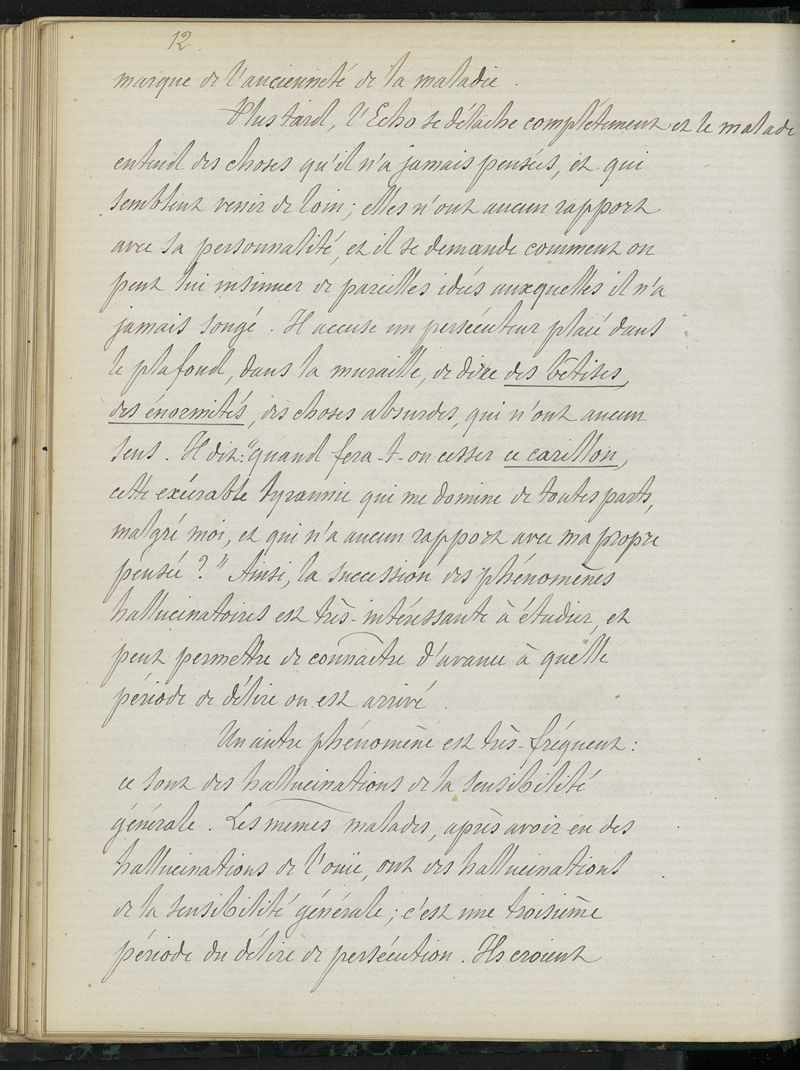 12.
marque de l'ancienneté de la maladie.
Plus tard, l'Echo se détache complétement et le malade
entend des choses qu'il n'a jamais pensées, et qui
semblent venir de loin; elles n'ont aucun rapport
avec sa personnalité, et il se demande comment on
peut lui insinuer de pareilles idées auxquelles il n'a
jamais songé. Il accuse un persécuteur placé dans
le plafond, dans la muraille, de dire des bêtises,
des énormités, des choses absurdes, qui n'ont aucun
sens. Il dit: "quand fera-t-on cesser ce carillon,
cette exécrable tyrannie qui me domine de toutes parts,
malgré moi, et qui n'a aucun rapport avec ma propre
pensée?" Ainsi, la succession des phénomènes
hallucinatoires est très-intéressante à étudier, et
peut permettre de connaître d'avance à quelle
période de délire on est arrivé.
Un autre phénomène est très-fréquent:
ce sont des hallucinations de la sensibilité
générale. Les mêmes malades, après avoir eu des
hallucinations de l'ouïe, ont des hallucinations
de la sensibilité générale; c'est une troisième
période du délire de persécution. Ils croient